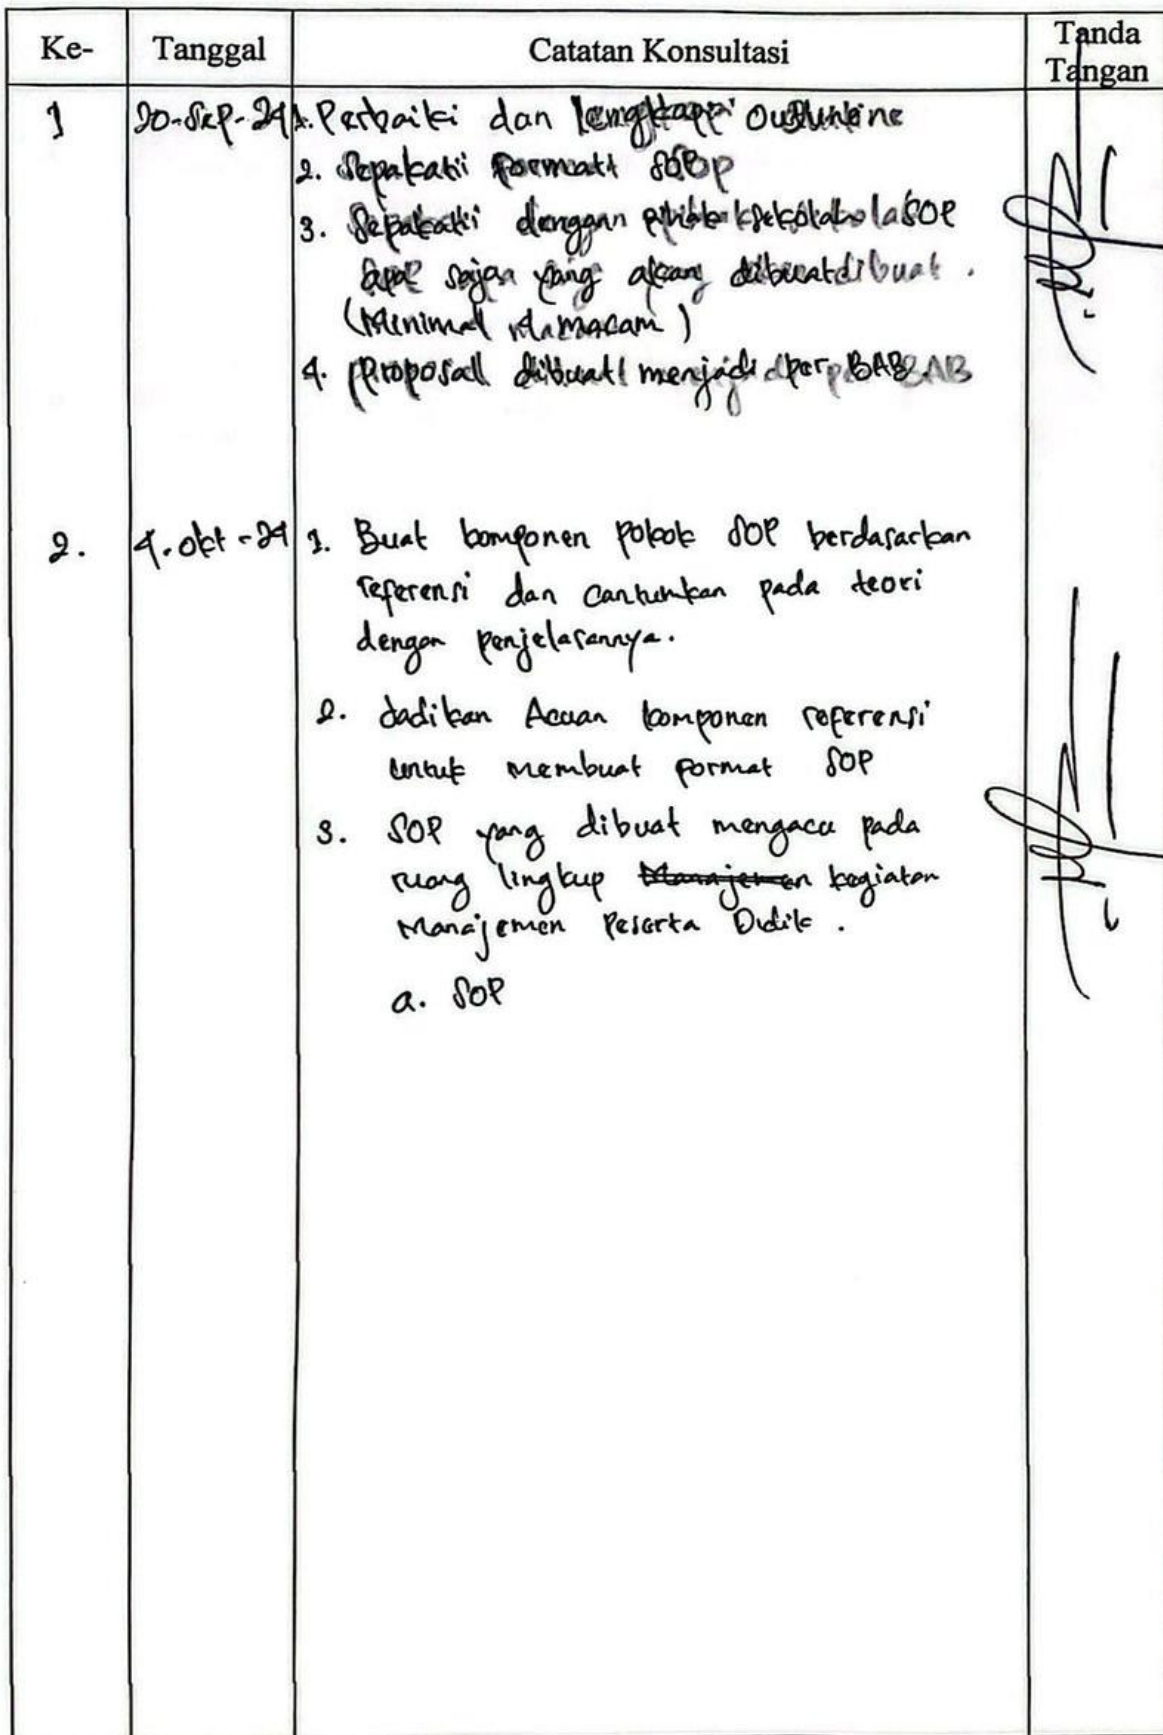 Ke- Tanggal Catatan Konsultasi Tanda Tangan
1 20-Sep-24 1. Perbaiki dan lengkapi Outline
2. Sepakati format SOP
3. Sepakati dengan pihak sekolah SOP
apa saja yang akan dibuat.
(Minimal macam)
4. Proposal dibuat menjadi per BAB.
2. 4-okt-24 1. Buat komponen pokok SOP berdasarkan
referensi dan cantumkan pada teori
dengan penjelasannya.
2. Jadikan Acuan komponen referensi
untuk membuat format SOP
3. SOP yang dibuat mengacu pada
ruang lingkup Manajemen kegiatan
Manajemen Peserta Didik.
a. SOP